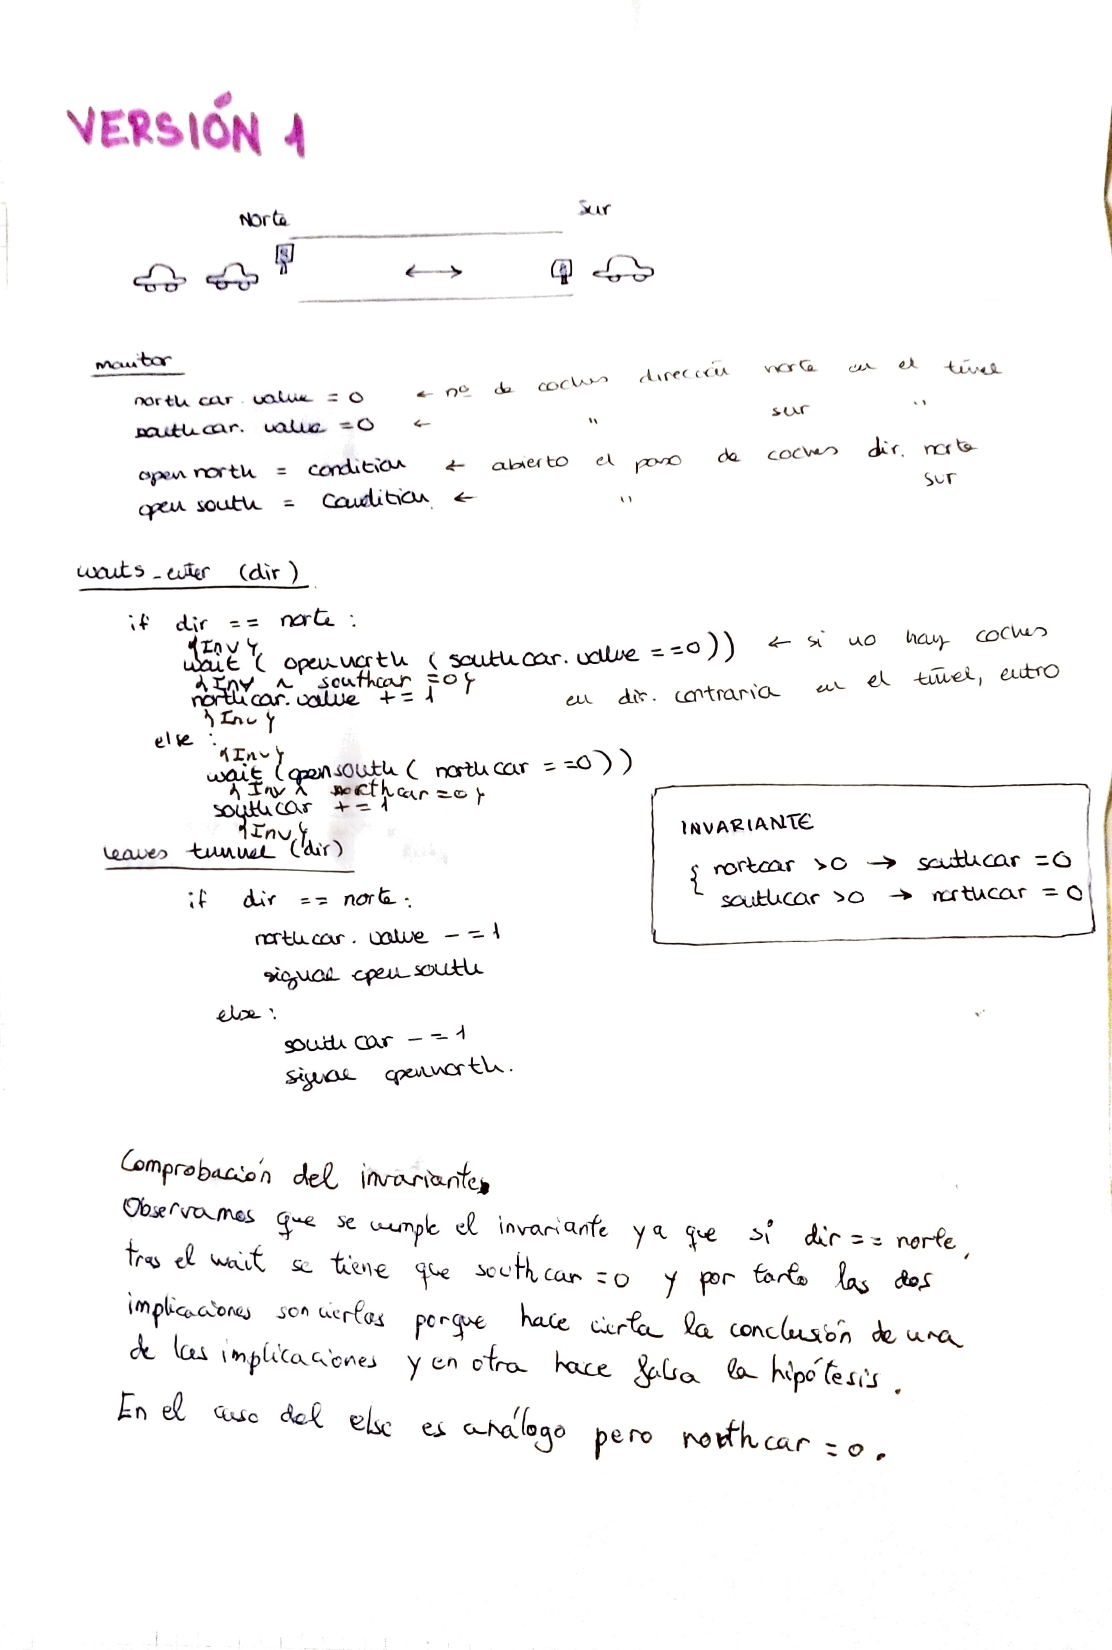 VERSIÓN 1
Norte
Sur
monitor
north car. value = 0 ← nº de coches dirección norte en el túnel
south car. value = 0 ← " sur "
open north = condition ← abierto el paso de coches dir. norte
open south = condition. ← " sur
wants_enter (dir)
if dir == norte :
{Inv}
wait ( open north ( south car. value == 0 )) ← si no hay coches
{Inv ∧ southcar = 0}
en dir. contraria en el túnel, entro
north car. value += 1
{Inv}
else :
{Inv}
wait (open south ( north car == 0 ))
{Inv ∧ northcar = 0}
south car += 1
{Inv}
leaves tunnel (dir)
if dir == norte :
north car. value -= 1
signal open south
else :
south car -= 1
signal open north.
INVARIANTE
{ nortcar > 0 → southcar = 0
southcar > 0 → northcar = 0
Comprobación del invariante
Observamos que se cumple el invariante ya que si dir == norte,
tras el wait se tiene que southcar = 0 y por tanto las dos
implicaciones son ciertas porque hace cierta la conclusión de una
de las implicaciones y en otra hace falsa la hipótesis.
En el caso del else es análogo pero northcar = 0.